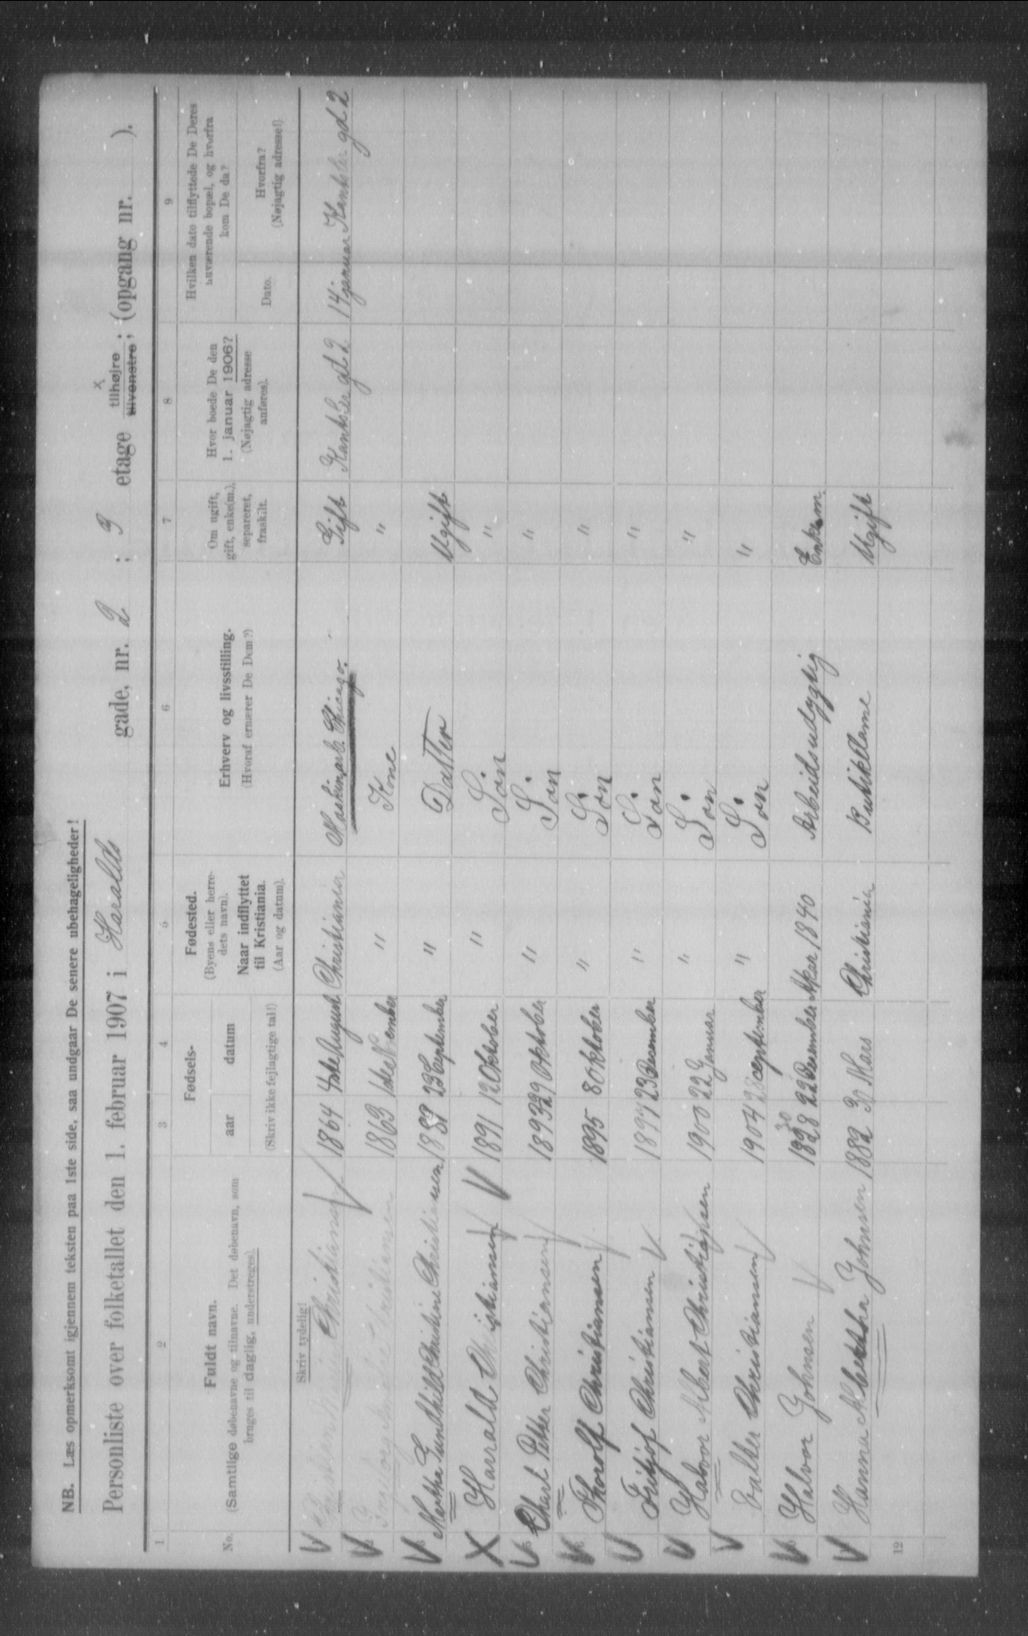 NB. Læs opmerksomt igjennem teksten paa 1ste side, saa undgaar De senere ubehageligheder!
Personliste over folketallet den 1. februar 1907 i Haralds gade, nr. 2 ; 3 etage tilhøjre x tilvenstre ; (opgang nr. ).
1 2 3 4 5 6 7 8 9
No. Fuldt navn. (Samtlige døbenavne og tilnavne. Det døbenavn, som bruges til daglig, understreges).
Fødsels- aar datum (Skriv ikke fejlagtige tal!)
Fødested. (Byens eller herredets navn). Naar indflyttet til Kristiania. (Aar og datum).
Erhverv og livsstilling. (Hvoraf ernærer De Dem?)
Om ugift, gift, enke(m.), separeret, fraskilt.
Hvor boede De den 1. januar 1906? (Nøjagtig adresse anføres).
Hvilken dato tilflyttede De Deres nuværende bopæl, og hvorfra kom De da? Dato. Hvorfra? (Nøjagtig adresse!).
Skriv tydelig!
Christiansen 1864 4de August Christiania Gift 14 januar
1863 " Kone "
Christiansen 23 September " Datter Ugift
Harald Christiansen 1891 12 Oktober " Søn "
Petter Christiansen 1893 29 Oktober " Søn "
Thorolf Christiansen 1895 8 Oktober " Søn "
Fritjof Christiansen 23 December " Søn "
Halvor Albert Christiansen 1900 22 Januar " Søn "
Christiansen 1904 September " Søn "
Halvor Johnsen 1828 30 22 December Aker 1840 Arbeidsudygtig Enkem.
Hanna Johnsen 1882 30 Mars Christiania Ugift
12